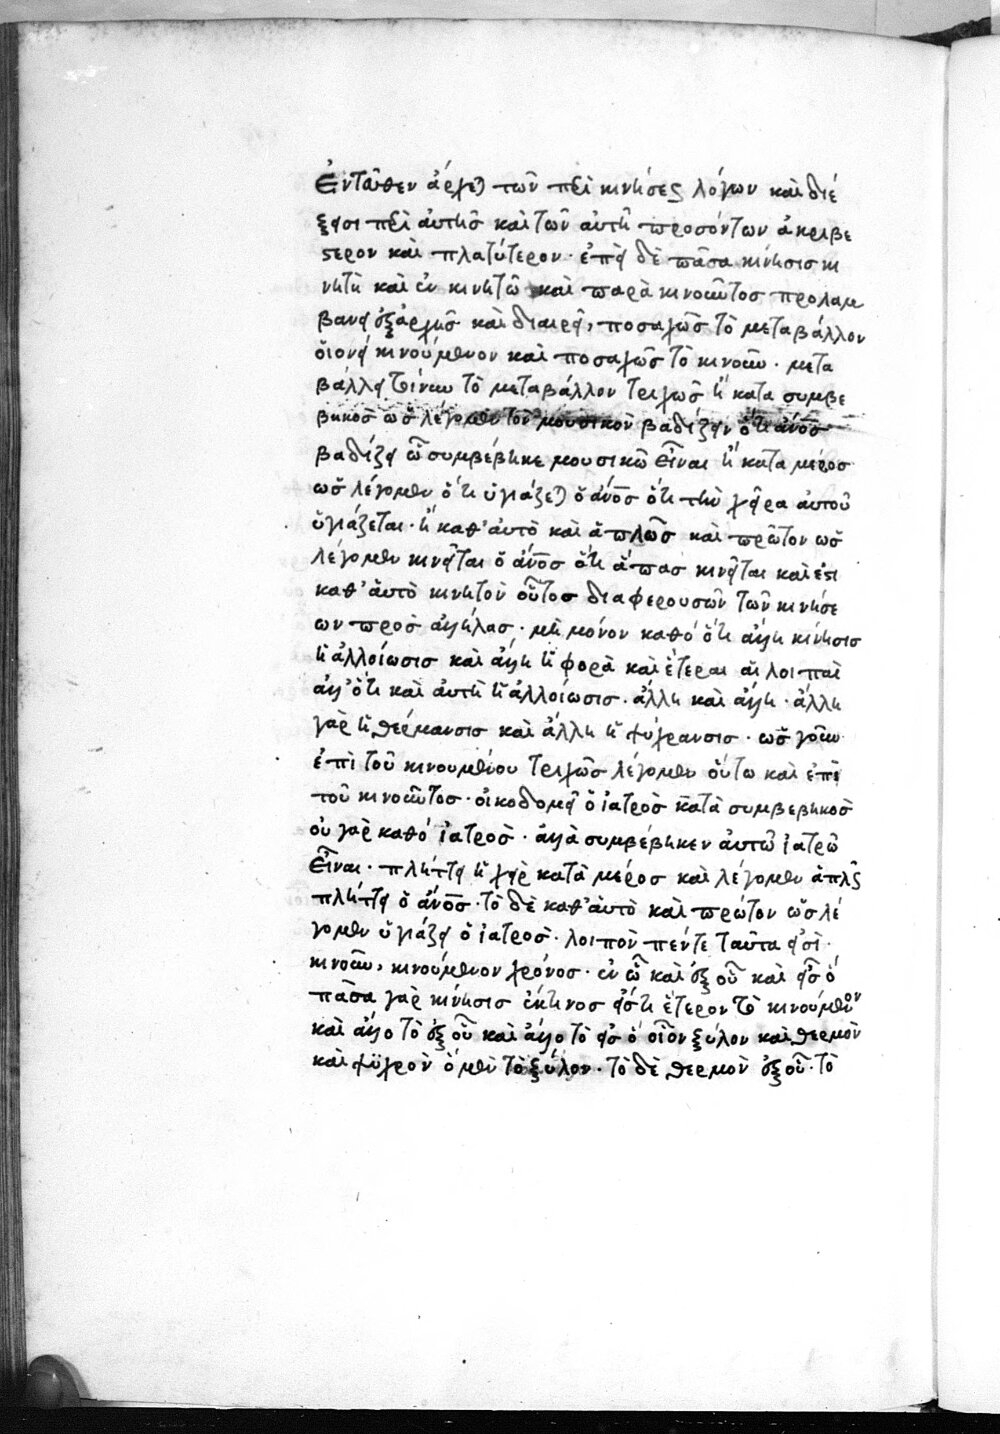 Ἐνταῦθεν ἄρχεται τῶν περὶ κινήσεως λόγων καὶ διέ
ξεισι περὶ αὐτῆς καὶ τῶν αὐτῇ προσόντων ἀκριβέ
στερον καὶ πλατύτερον· ἐπεὶ δὲ πᾶσα κίνησις κι
νητῇ καὶ ἐν κινητῷ καὶ παρὰ κινοῦντος προλαμ
βάνει ἐξαρχῆς καὶ διαιρεῖ, ποσαχῶς τὸ μεταβάλλον
οἱονεὶ κινούμενον καὶ ποσαχῶς τὸ κινοῦν· μετα
βάλλει τοίνυν τὸ μεταβάλλον τριχῶς ἢ κατα συμβε
βηκὸς ὡς λέγομεν τὸν μουσικὸν βαδίζειν ὅτι ἄνος
βαδίζει ὧ συμβέβηκε μουσικῶ εἶναι ἢ κατα μέρος
ὡς λέγομεν ὅτι ὑγιάζεται ὁ ἄνος ὅτι τὴν χεῖρα αὐτοῦ
ὑγιάζεται· ἢ καθ' αὑτὸ καὶ ἁπλῶς καὶ πρῶτον ὡς
λέγομεν κινεῖται ὁ ἄνος ὅτι ἅπας κινεῖται καὶ ἔστι
καθ' αὑτὸ κινητὸν οὗτος διαφερουσῶν τῶν κινήσε
ων πρὸς ἀλλήλας· μὴ μόνον καθό ὅτι ἄλλη κίνησις
ἡ ἀλλοίωσις καὶ ἄλλη ἡ φορὰ καὶ ἕτεραι αἱ λοιπαὶ
ἀλλ' ὅτι καὶ αὐτὴ ἡ ἀλλοίωσις· ἄλλη καὶ ἄλλη· ἄλλη
γὰρ ἡ θέρμανσις καὶ ἄλλη ἡ ψύχρανσις· ὡς γοῦν
ἐπὶ τοῦ κινουμένου τριχῶς λέγομεν οὕτω καὶ ἐπὶ
τοῦ κινοῦντος· οἰκοδομεῖ ὁ ἰατρὸς κατὰ συμβεβηκὸς
οὐ γὰρ καθό ἰατρὸς· ἀλλὰ συμβέβηκεν αὐτῶ ἰατρῶ
εἶναι· πλήττει ἡ χεὶρ κατὰ μέρος καὶ λέγομεν ἁπλῶς
πλήττει ὁ ἄνος· τὸ δὲ καθ' αὑτὸ καὶ πρώτον ὡς λέ
γομεν ὑγιάζει ὁ ἰατρὸς· λοιπὸν πέντε ταῦτα εἰσὶ·
κινοῦν, κινούμενον χρόνος· ἐν ὧ καὶ ἐξ οὗ καὶ εἰς ὅ
πᾶσα γὰρ κίνησις ἔκ τινος εἴς τι ἕτερον τὸ κινούμενον
καὶ ἄλλο τὸ ἐξ οὗ καὶ ἄλλο τὸ εἰς ὅ οἷον ξύλον καὶ θερμὸν
καὶ ψυχρὸν ὁ μὲν τὸ ξύλον· τὸ δὲ θερμὸν ἐξ οὗ· τὸ